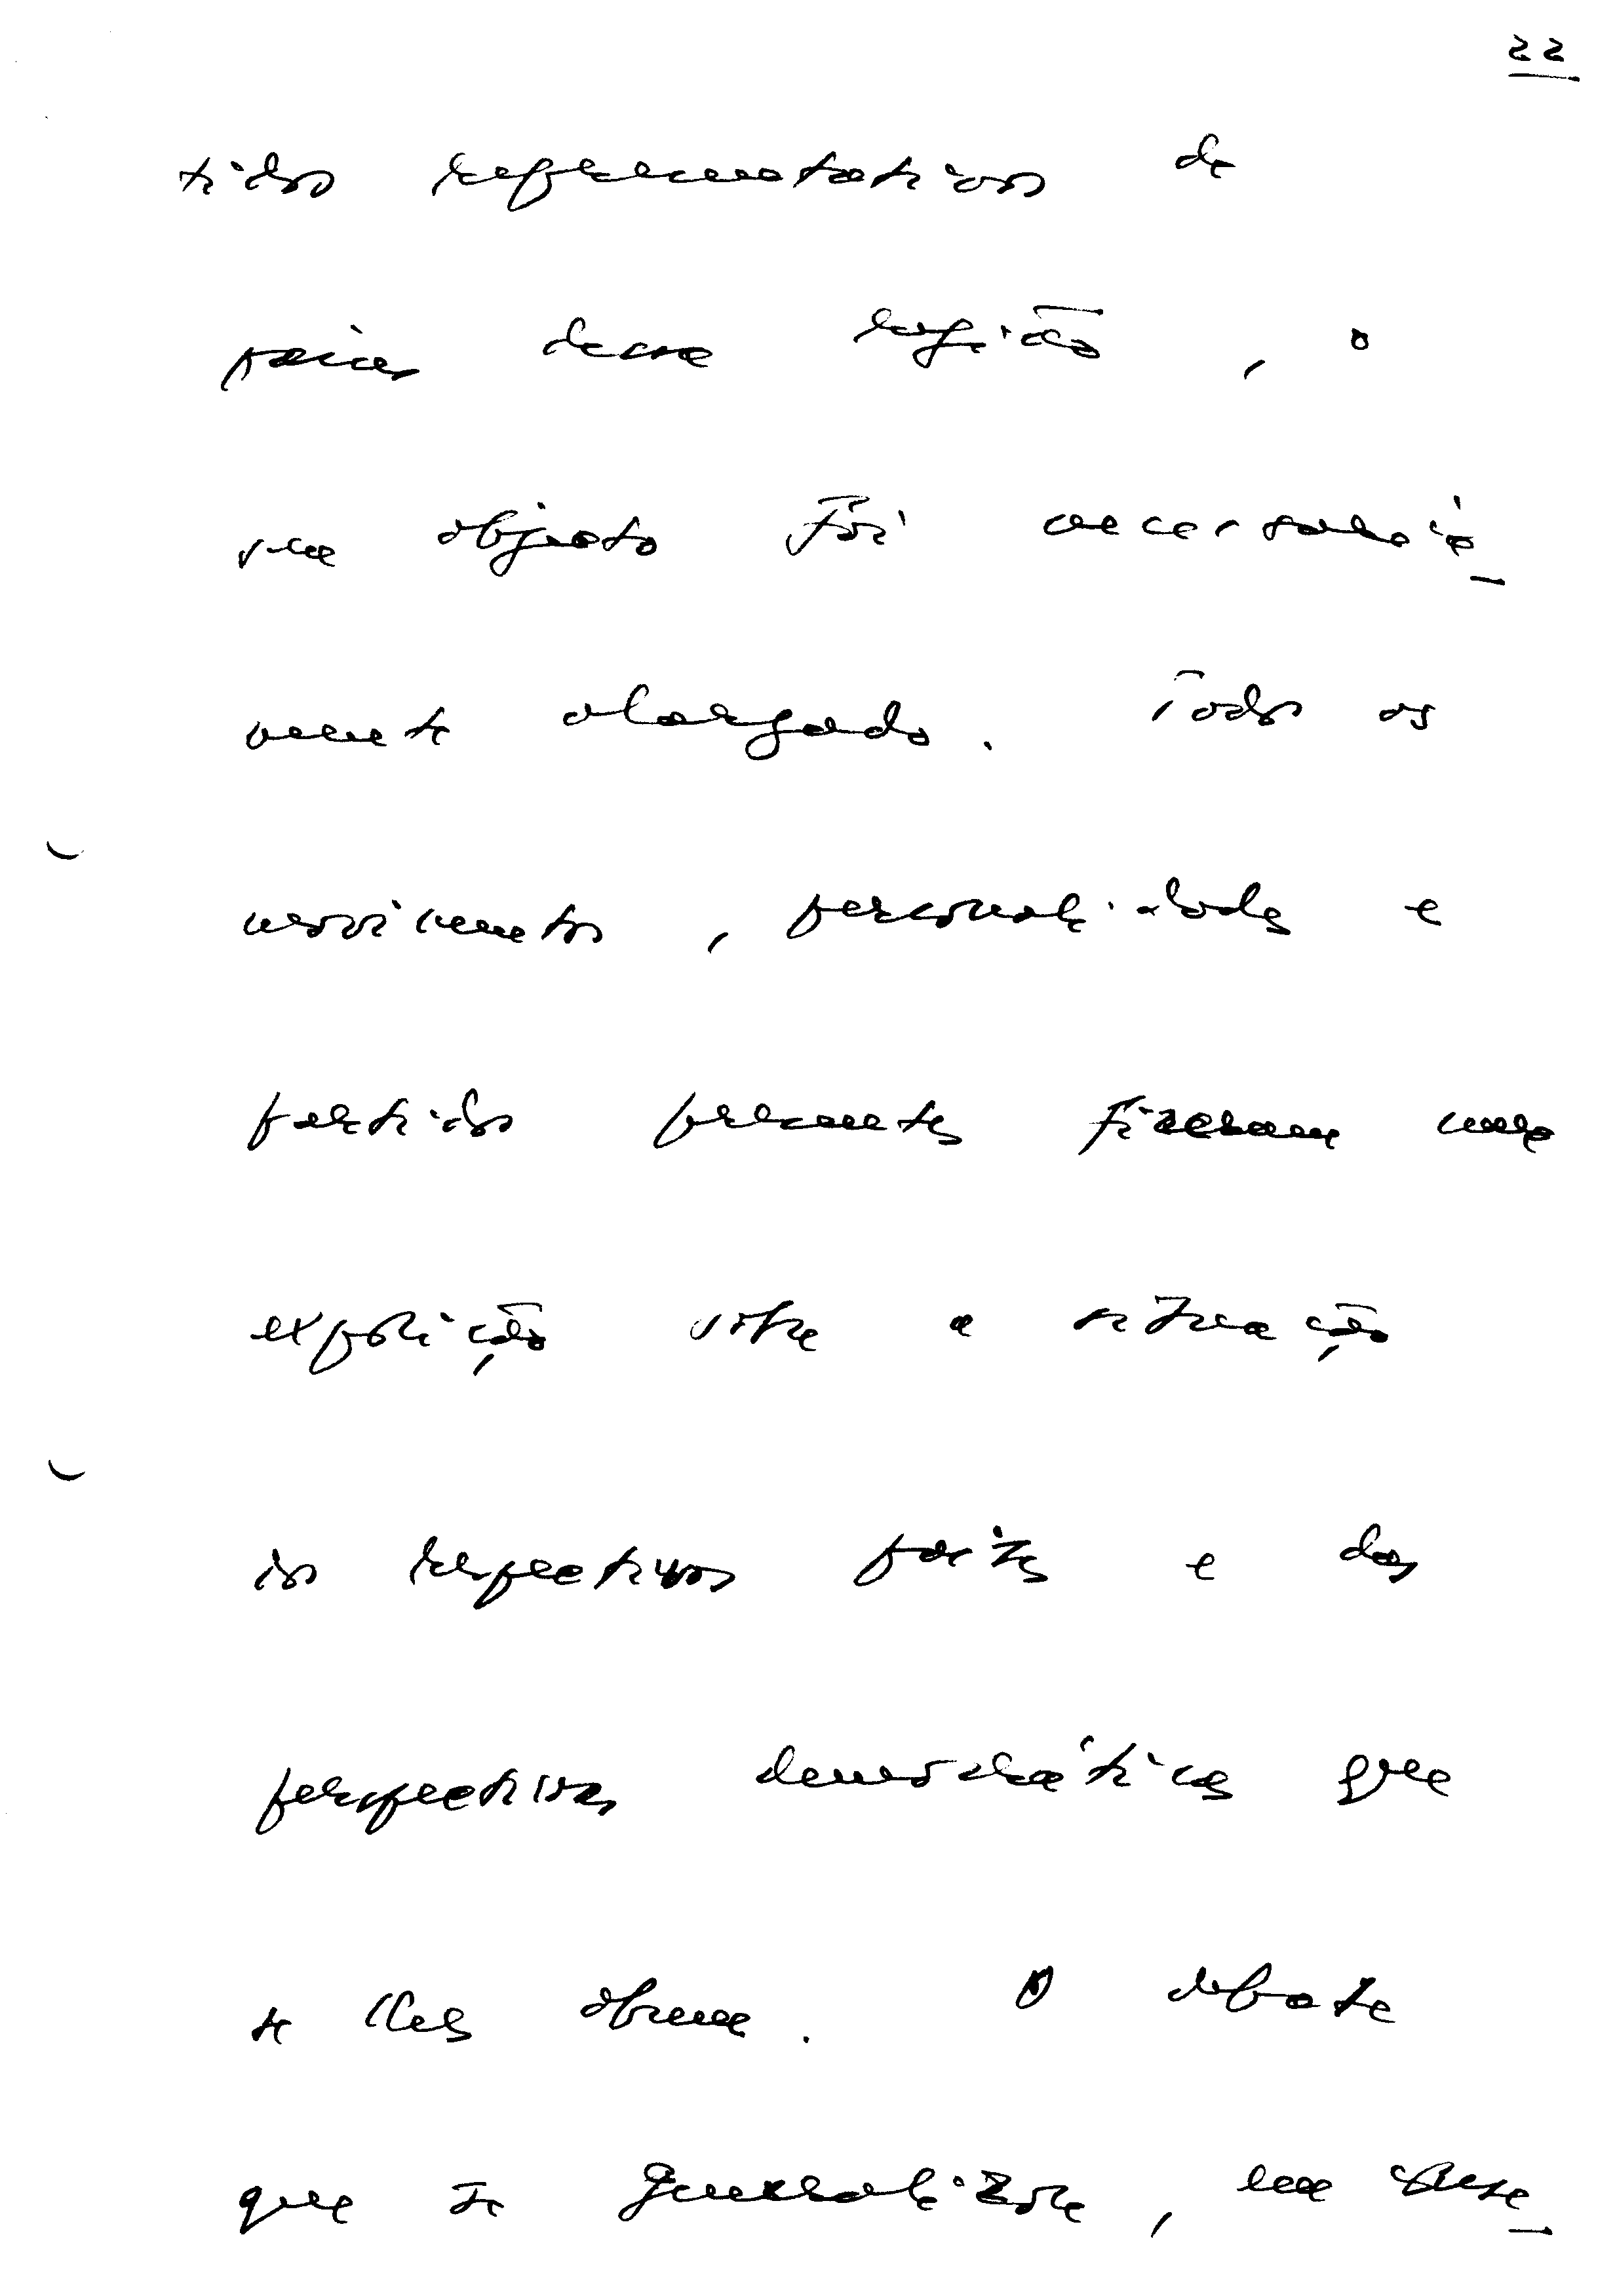 22
tidos representativos de
países dessa região, o
seu objecto foi necessaria_
mente alargado. Todos os
movimentos, personalidades e
partidos presentes fizeram uma
exposição sobre a situação
respectivos países e das
perspectivas democráticas que
se lhes abrem. O debate
que se generalizou, em